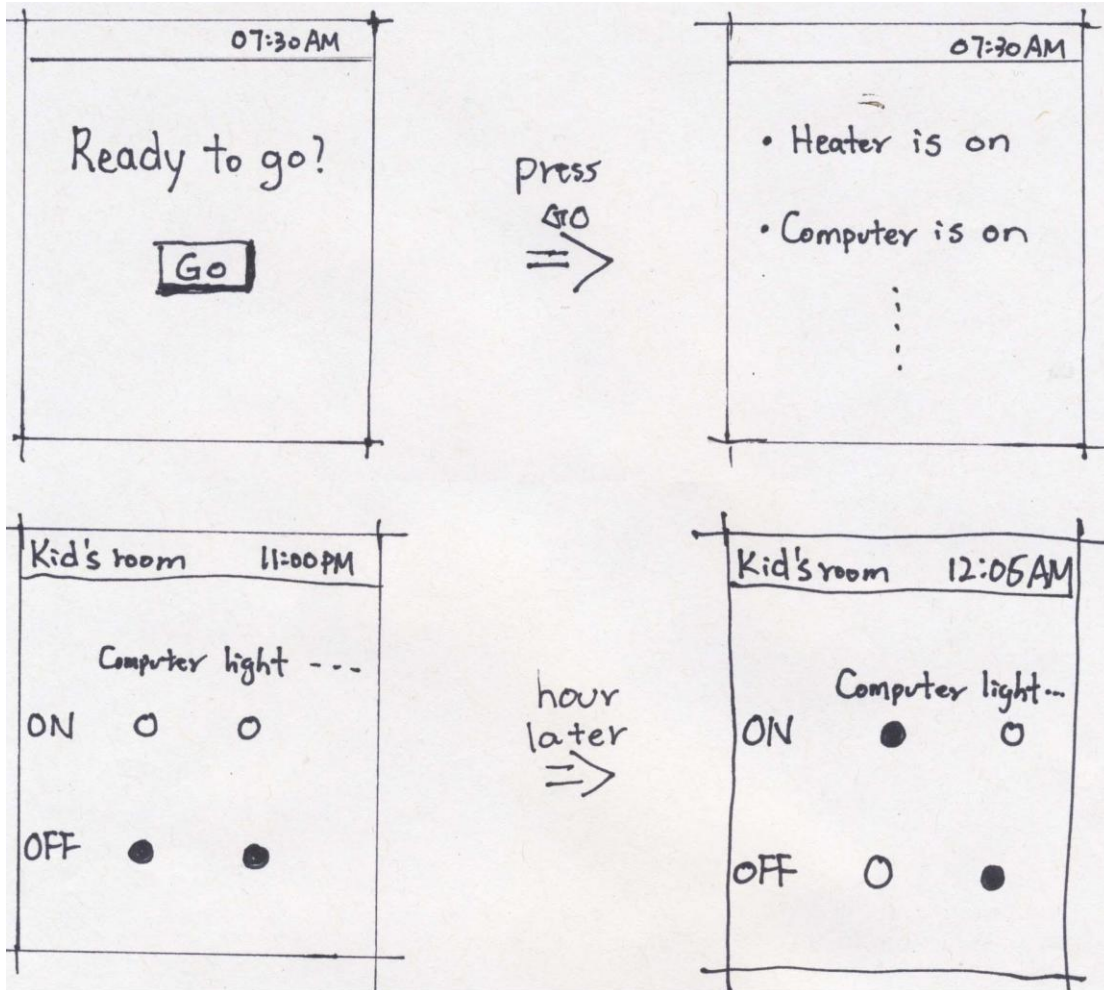 07:30AM
Ready to go?
Go
press
GO
07:30AM
• Heater is on
• Computer is on
Kid's room 11:00PM
Computer light ----
ON
OFF
hour
later
Kid's room 12:05AM
Computer light...
ON
OFF